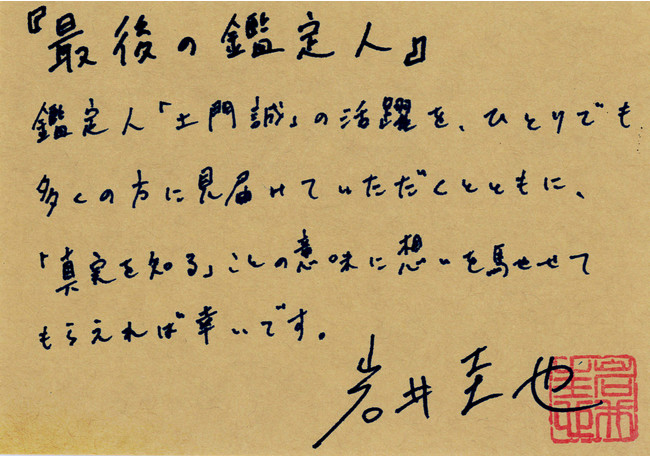 『最後の鑑定人』
鑑定人「土門誠」の活躍を、ひとりでも
多くの方に見届けていただくとともに、
「真実を知る」ことの意味に想いを馳せて
もらえれば幸いです。
岩井圭也